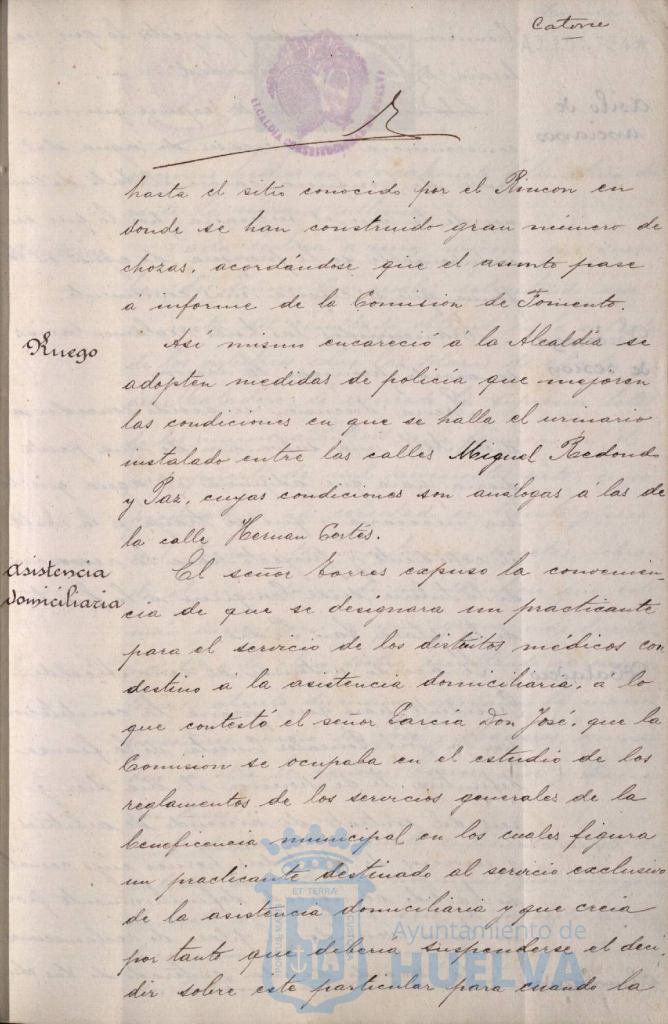 Catorce
ALCALDIA CONSTITUCIONAL DE HUELVA
hasta el sitio conocido por el Rincon en
donde se han construido gran número de
chozas, acordándose que el asunto pase
á informe de la Comision de Fomento.
Ruego
Así mismo encareció á la Alcaldía se
adopten medidas de policía que mejoren
las condiciones en que se halla el urinario
instalado entre las calles Miguel Redondo
y Paz, cuyas condiciones son análogas á las de
la calle Hernan Cortés.
Asistencia
domiciliaria
El señor Torres expuso la convenien-
cia de que se designara un practicante
para el servicio de los distritos médicos con
destino á la asistencia domiciliaria, a lo
que contestó el señor García Don José, que la
Comision se ocupaba en el estudio de los
reglamentos de los servicios generales de la
beneficencia municipal en los cuales figura
un practicante destinado al servicio exclusivo
de la asistencia domiciliaria y que creia
por tanto que deberia suspenderse el deci-
dir sobre este particular para cuando la
ET TERRÆ
Ayuntamiento de
HUELVA